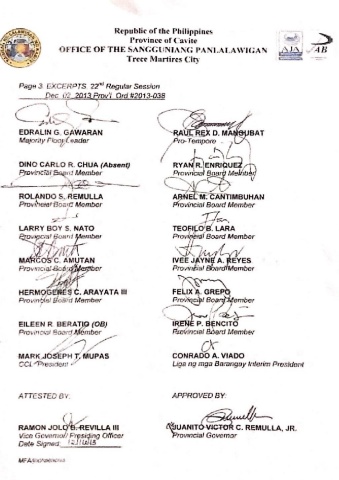 Republic of the Philippines
Province of Cavite
OFFICE OF THE SANGGUNIANG PANLALAWIGAN
Trece Martires City
Page 3. EXCERPTS 22nd Regular Session
Dec. 02, 2013 Prov'l. Ord #2013-038
EDRALIN G. GAWARAN
Majority Floor Leader
RAUL REX D. MANGUBAT
Pro-Tempore
DINO CARLO R. CHUA (Absent)
Provincial Board Member
RYAN R. ENRIQUEZ
Provincial Board Member
ROLANDO S. REMULLA
Provincial Board Member
ARNEL M. CANTIMBUHAN
Provincial Board Member
LARRY BOY S. NATO
Provincial Board Member
TEOFILO B. LARA
Provincial Board Member
MARCOS C. AMUTAN
Provincial Board Member
IVEE JAYNE A. REYES
Provincial Board Member
HERMOGENES C. ARAYATA III
Provincial Board Member
FELIX A. GREPO
Provincial Board Member
EILEEN R. BERATIO (OB)
Provincial Board Member
IRENE P. BENCITO
Provincial Board Member
MARK JOSEPH T. MUPAS
CCL President
CONRADO A. VIADO
Liga ng mga Barangay Interim President
ATTESTED BY:
APPROVED BY:
RAMON JOLO B. REVILLA III
Vice Governor/ Presiding Officer
Date Signed:
JUANITO VICTOR C. REMULLA, JR.
Provincial Governor